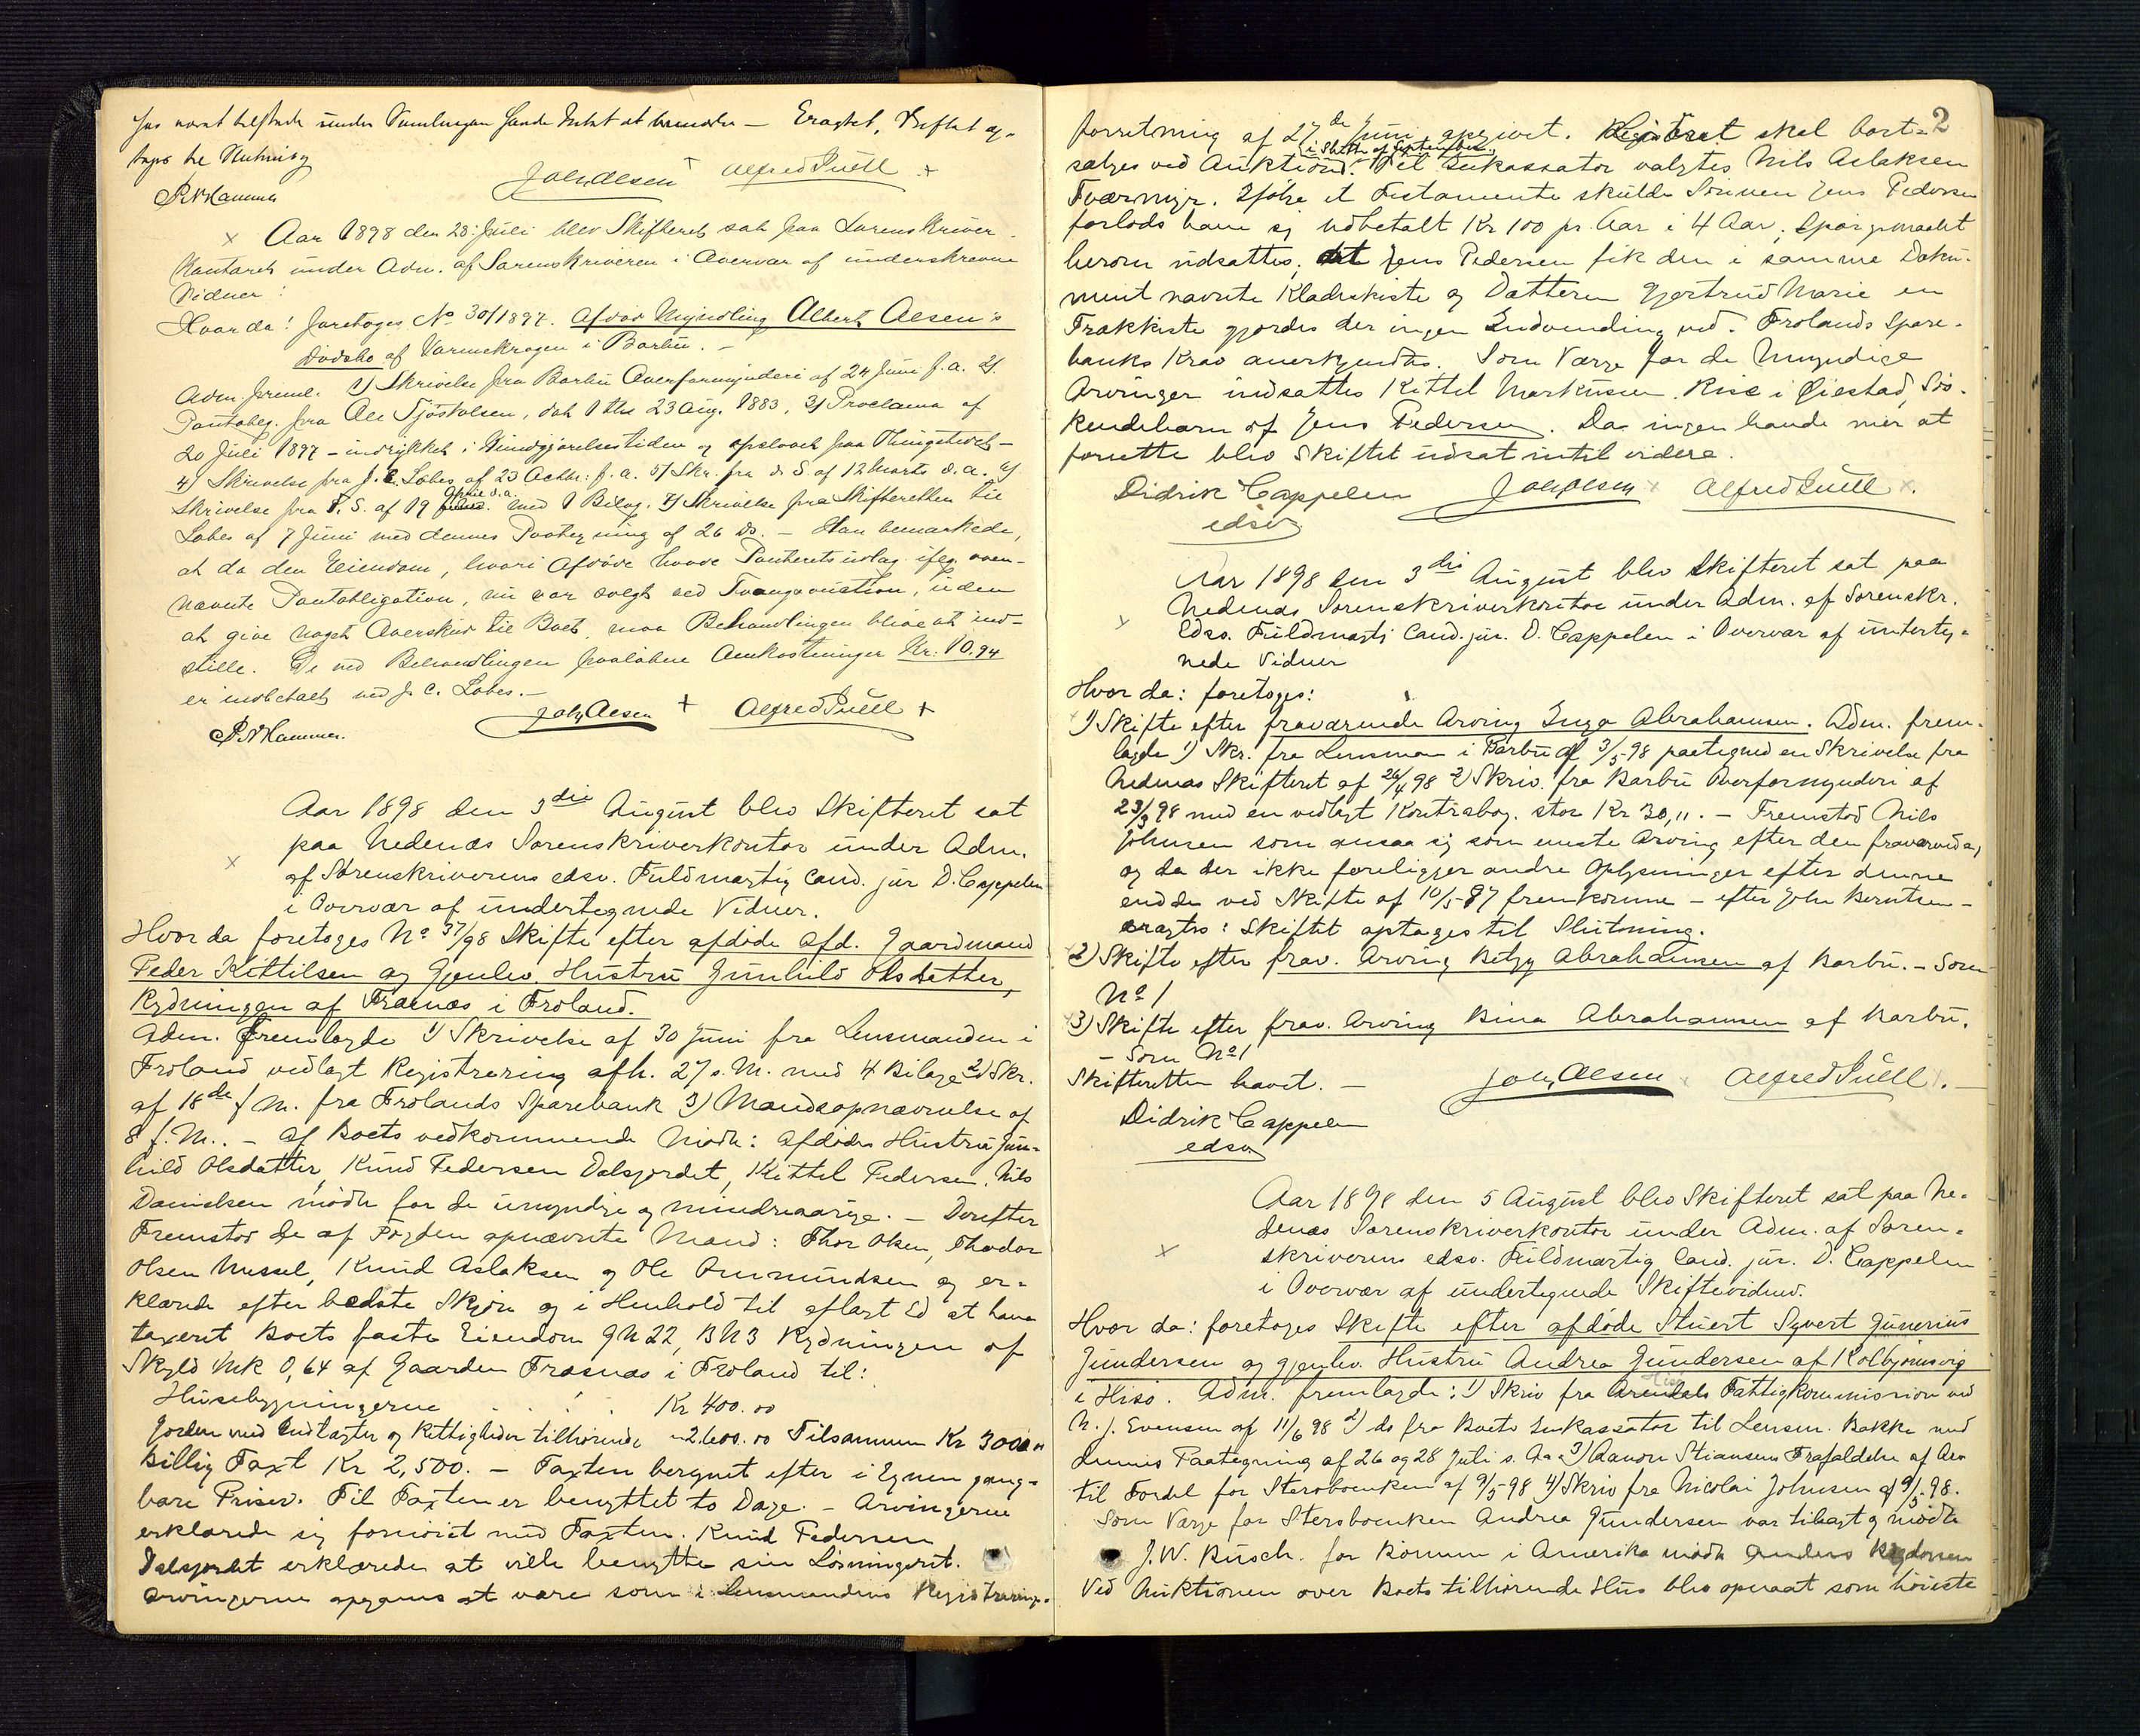 været tilstede under Samlingen havde Intet at bemærke — Eragtet, Skiftet op-
tages til Slutning
P. N. Hammer Joh. Olsen + Alfred Juell +
x Aar 1898 den 28. Juli blev Skifteret sat paa Sorenskriver-
kontoret under Adm. af Sorenskriveren i Overvær af underskrevne
Vidner:
Hvor da: foretoges No 30/1897. Afdøde Myndling Albert Olsen's
Dødsbo af Varmekrogen i Barbu. —
Adm. freml. 1) Skrivelse fra Barbu Overformynderi af 24 Juni f.a. 2)
Pantoblg. fra Ole Tjøstolsen, dat 1 thl 23 Aug. 1883, 3) Proclama af
20 Juli 1897 — indrykket i Kundgjørelsestiden og opslaaet paa Thingstedet —
4) Skrivelse fra J. C. Lobes af 23 Octbr. f.a. 5) Skr. fra d. S. af 12 Marts d.a. 6)
Skrivelse fra F. S. af 19 April d.a. med 1 Bilag. 7) Skrivelse fra Skifteretten til
Lobes af 7 Juni med dennes Paategning af 26 ds. — Han bemærkede,
at da den Eiendom, hvori Afdøde havde Panteretsudlæg ifølg. oven-
nævnte Pantobligation, nu var solgt ved Tvangsauction, uden
at give noget Overskud til Boet, maa Behandlingen blive at ind-
stille. De ved Behandlingen paaløbne Omkostninger Kr. 10.94
er indbetalt ved J. C. Lobes. —
P. N. Hammer. Joh. Olsen + Alfred Juell +
Aar 1898 den 3die August blev Skifteret sat
paa Nedenæs Sorenskriverkontor under Adm.
x af Sorenskriverens edsv. Fuldmægtig Cand. jur D. Cappelen
i Overvær af undertegnede Vidner.
Hvor da foretoges No 37/98 Skifte efter afdøde Afd. Gaardmand
Peder Kittilsen og Gjenlev. Hustru Gunhild Olsdatter,
Rydningen af Frænæs i Froland.
Adm. fremlagde 1) Skrivelse af 30 Juni fra Lensmanden i
Froland vedlagt Registrering afh. 27 s. M. med 4 Bilage 2) Skr.
af 18de f. M. fra Frolands Sparebank 3) Mandsopnævnelse af
8 f. M. — Af Boets vedkommende Mødte: Afdødes Hustru Gun-
hild Olsdatter, Knud Pedersen Dalsjordet, Kittel Pedersen. Nils
Danielsen mødte for de umyndige og mindreaarige. — Derefter
Fremstod de af Fogden opnævnte Mænd: Thor Olsen, Thodor
Olsen Messel, Knud Aslaksen og Ole Ommundsen og er-
klærede efter bedste Skjøn og i Henhold til aflagt Ed at have
taxeret Boets faste Eiendom GN 22, BN 3 Rydningen af
Skyld Mk 0,64 af Gaarden Frænæs i Froland til:
Husebygningerne . . . . Kr 400.00
Jorden med Indtægter og Rettigheder tilhørende " 2.600.00 Tilsammen Kr 3000 "
Billig Taxt Kr 2,500. — Taxten beregnet efter i Egnen gang-
bare Priser. Til Taxten er benyttet to Dage. — Arvingerne
erklærede sig fornøiet med Taxten. Knud Pedersen
Dalsjordet erklærede at ville benytte sin Løsningsret.
Arvingerne opgaves at være som i Lensmandens Registrerings-
2
forretning af 27de Juni opgivet. Registret skal bort-
i Slutten af September.
sælges ved Auktion. Til Inkassator valgtes Nils Aslaksen
Tværmyr. Ifølge et Testamente skulde Sønnen Jens Pedersen
forlods have sig udbetalt Kr 100 pr. Aar i 4 Aar, Spørgsmaalet
herom udsattes; at Jens Pedersen fik den i samme Doku-
ment nævnte Klædeskiste og Datteren Gjertrud Marie en
Trækkiste gjordes der ingen Indvending ved. Frolands Spare-
banks Krav anerkjendtes. Som Værge for de Umyndige
Arvinger indsattes Kittel Markussen Rise i Øiestad, Søs-
kendebarn af Jens Pedersen. Da ingen havde mer at
forrette blev Skiftet udsat indtil videre.
Didrik Cappelen Joh. Olsen x Alfred Juell x.
edsv
Aar 1898 den 3die August blev Skifteret sat paa
x Nedenæs Sorenskriverkontor under Adm. af Sorenskr.
Edsv. Fuldmægti Cand. jur. D. Cappelen i Overvær af underteg-
nede Vidner
Hvor da: foretoges:
1) Skifte efter fraværende Arving Inga Abrahamsen. Adm. frem-
lagde 1) Skr. fra Lensman i Barbu af 3/5 98 paategned en Skrivelse fra
Nedenæs Skifteret af 26/4 98 2) Skriv. fra Barbu Overformynderi af
23/3 98 med en vedlagt Kontrabog. stor Kr 30,11. — Fremstod Nils
Johnsen som ansaa sig som eneste Arving efter den fraværende,
og da der ikke foreligger andre Oplysninger efter denne
end de ved Skifte af 10/5 87 fremkomne — efter John Berntsen —
eragtes: Skiftet optages til Slutning.
2) Skifte efter frav. Arving Betzy Abrahamsen af Barbu. — Som
No 1
3) Skifte efter frav. Arving Bina Abrahamsen af Barbu.
— Som No 1
Skifteretten hævet. — Joh. Olsen x Alfred Juell. —
Didrik Cappelen
edsv
Aar 1898 den 5 August blev Skifteret sat paa Ne-
denæs Sorenskriverkontor under Adm. af Soren-
x skriverens edsv. Fuldmægtig Cand. jur. D. Cappelen
i Overvær af undertegnede Skiftevidner.
Hvor da: foretoges Skifte efter afdøde Stuert Syvert Gunerius
Gundersen og gjenlev. Hustru Andrea Gundersen af Kolbjørnsvig
i Hisø. Adm. fremlagde: 1) Skriv fra Arendals Fattigkommission ved
N. J. Evensen af 11/6 98 2) ds fra Boets Inkassator til Lensm. Bakke med
dennes Paategning af 26 og 28 Juli s. Aa 3) Aanon Stiansens Frafaldelse af Arv
til Fordel for Stervboenken af 9/5 98 4) Skriv fra Nicolai Johnsen af 9/5 98.
Som Værge for Stervboenken Andrea Gundersen var tilsagt og mødte
J. W. Busch. for Børnene i Amerika mødte
Ved Auktionen over Boets tilhørende Hus blev opnaaet som høieste